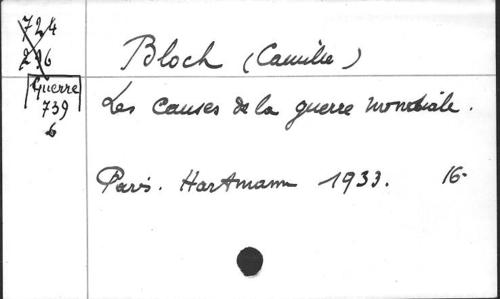 724
296
Guerre
739
6
Bloch (Camille)
Les causes de la guerre mondiale.
Paris. Hartmann 1933. 16-